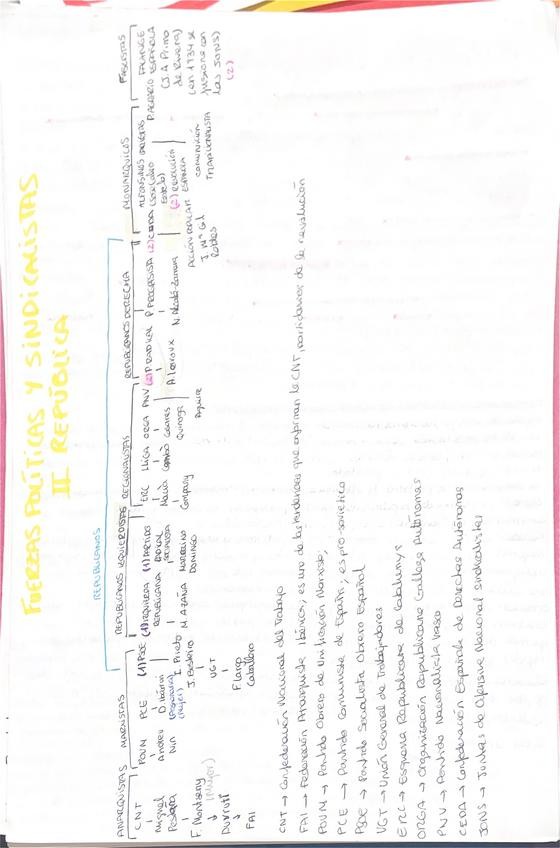 FUERZAS POLÍTICAS Y SINDICALISTAS
II REPÚBLICA
REPUBLICANOS
ANARQUISTAS
CNT
Miguel
F. Montseny
(Mujer)
Durruti
FAI
MARXISTAS
POUM
Andreu
Nin
PCE
D. Ibárruri
(Pasionaria)
(Mujer)
(1) PSOE
I. Prieto
J. Besteiro
UGT
F. Largo
Caballero
REPUBLICANOS IZQUIERDISTAS
(1) IZQUIERDA
REPUBLICANA
M. AZAÑA
(1) PARTIDO
RADICAL
SOCIALISTA
MARCELINO
DOMINGO
REGIONALISTAS
ERC
Macià
Company
LLIGA
Cambó
ORGA
Casares
Quiroga
PNV
Aguirre
REPUBLICANOS DERECHA
(2) P. RADICAL
A. Lerroux
P. PROGRESISTA
N. Alcalá-Zamora
(2) CEDA
ACCIÓN POPULAR
J. Mª Gil
Robles
MONÁRQUICOS
ALFONSINOS
(José Calvo
Sotelo)
(2) RENOVACIÓN
ESPAÑOLA
CARLISTAS
COMUNIÓN
TRADICIONALISTA
FASCISTAS
FALANGE
ESPAÑOLA
(J. A Primo
de Rivera)
(en 1934 se
fusiona con
las JONS)
(2)
P. AGRARIO
CNT → Confederación Nacional del Trabajo
FAI → Federación Anarquista Ibérica, es una de las tendencias que conforman la CNT, partidarios de la revolución
POUM → Partido Obrero de Unificación Marxista;
PCE → Partido Comunista de España; es pro-soviético
PSOE → Partido Socialista Obrero Español
UGT → Unión General de Trabajadores
ERC → Esquerra Republicana de Catalunya
ORGA → Organización Republicana Gallega Autónoma
PNV → Partido Nacionalista Vasco
CEDA → Confederación Española de Derechas Autónomas
JONS → Juntas de Ofensiva Nacional Sindicalistas